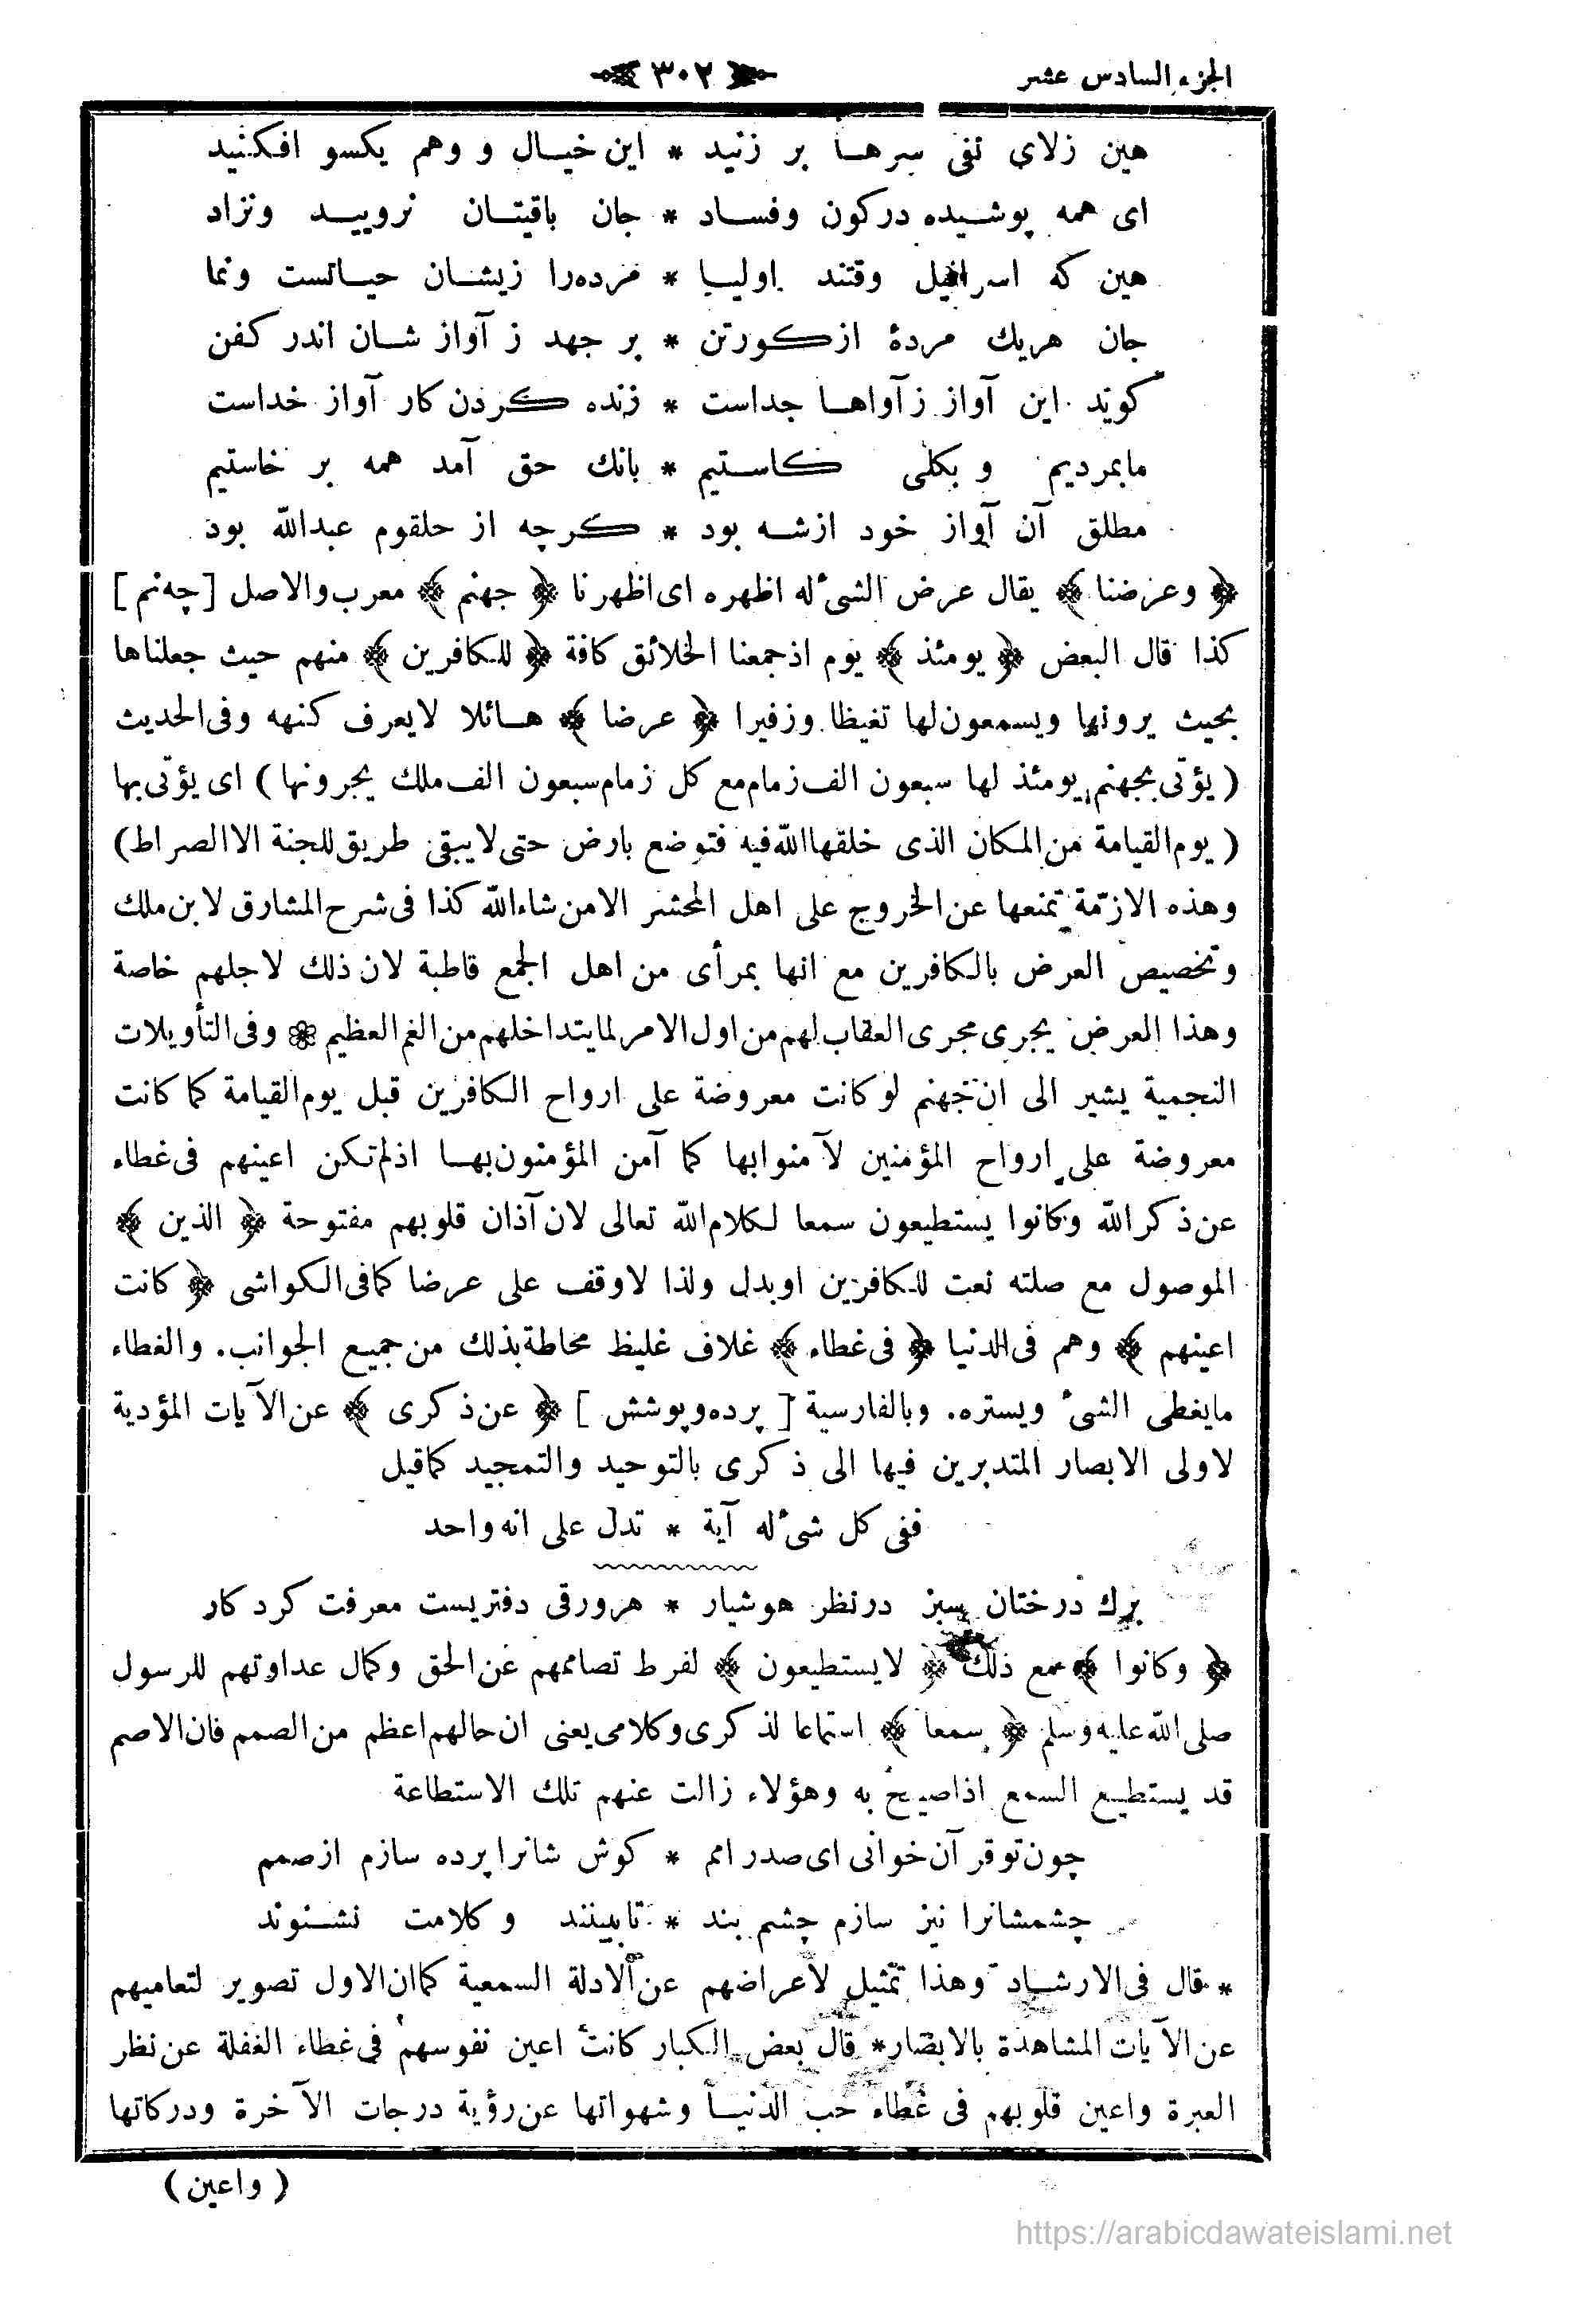 الجزء السادس عشر
﴿ ٣٠٢ ﴾
هين زلاى نفى سرهـا بر زنيد * اين خيـال و وهم يكسو افكنيد
اى همه پوشـيده دركون وفسـاد * جان باقيتـان نروييـد ونزاد
هين كه اسرافيل وقتند اوليـا * مرده‌را زيشـان حيـاتست ونما
جان هريك مردهٔ ازكورتن * بر جهد ز آواز شـان اندر كفن
كويد اين آواز زآواهـا جداست * زنده كردن كار آواز خداست
مابمرديم و بكلى كاسـتيم * بانك حق آمد همه بر خاستيم
مطلق آن آواز خود ازشـه بود * كرچه از حلقوم عبدالله بود
﴿ وعرضنا ﴾ يقال عرض الشئ له اظهره اى اظهرنا ﴿ جهنم ﴾ معرب والاصل [ چه‌نم ]
كذا قال البعض ﴿ يومئذ ﴾ يوم اذ جمعنا الخلائق كافة ﴿ للكافرين ﴾ منهم حيث جعلناها
بحيث يرونها ويسمعون لها تغيظا وزفيرا ﴿ عرضا ﴾ هـائلا لايعرف كنهه وفى الحديث
( يؤتى بجهنم يومئذ لها سبعون الف زمام مع كل زمام سبعون الف ملك يجرونها ) اى يؤتى بها
( يوم القيامة من المكان الذى خلقها الله فيه فتوضع بارض حتى لايبقى طريق للجنة الا الصراط )
وهذه الازمّة تمنعها عن الخروج على اهل المحشر الا من شاء الله كذا فى شرح المشارق لابن ملك
وتخصيص العرض بالكافرين مع انها بمرأى من اهل الجمع قاطبة لان ذلك لاجلهم خاصة
وهذا العرض يجرى مجرى العقاب لهم من اول الامر لما يتداخلهم من الغم العظيم ❁ وفى التأويلات
النجمية يشير الى ان جهنم لوكانت معروضة على ارواح الكافرين قبل يوم القيامة كما كانت
معروضة على ارواح المؤمنين لآمنوابها كما آمن المؤمنون بهـا اذلم تكن اعينهم فى غطاء
عن ذكر الله وكانوا يستطيعون سمعا لكلام الله تعالى لان آذان قلوبهم مفتوحة ﴿ الذين ﴾
الموصول مع صلته نعت للكافرين اوبدل ولذا لاوقف على عرضا كمافى الكواشى ﴿ كانت
اعينهم ﴾ وهم فى الدنيا ﴿ فى غطاء ﴾ غلاف غليظ محاطة بذلك من جميع الجوانب. والغطاء
مايغطى الشئ ويستره. وبالفارسية [ پرده وپوشش ] ﴿ عن ذكرى ﴾ عن الآيات المؤدية
لاولى الابصار المتدبرين فيها الى ذكرى بالتوحيد والتمجيد كماقيل
ففى كل شئ له آية * تدل على انه واحد
برك درختان سبز درنظر هوشيار * هرورقى دفتريست معرفت كردكار
﴿ وكانوا ﴾ مع ذلك ﴿ لايستطيعون ﴾ لفرط تصاممهم عن الحق وكمال عداوتهم للرسول
صلى الله عليه وسلم ﴿ سمعا ﴾ استماعا لذكرى وكلامى يعنى ان حالهم اعظم من الصمم فان الاصم
قد يستطيع السمع اذاصيح به وهؤلاء زالت عنهم تلك الاستطاعة
چون توقرآن خوانى اى صدر امم * كوش شانرا پرده سازم ازصمم
چشمشانرا نيز سازم چشم بند * تانبينند وكلامت نشـنوند
* قال فى الارشـاد وهذا تمثيل لاعراضهم عن الادلة السمعية كماان الاول تصوير لتعاميهم
عن الآيات المشاهدة بالابصار * قال بعض الكبار كانت اعين نفوسهم فى غطاء الغفلة عن نظر
العبرة واعين قلوبهم فى غطاء حب الدنيـا وشهواتها عن رؤية درجات الآخرة ودركاتها
( واعين )
https://arabicdawateislami.net